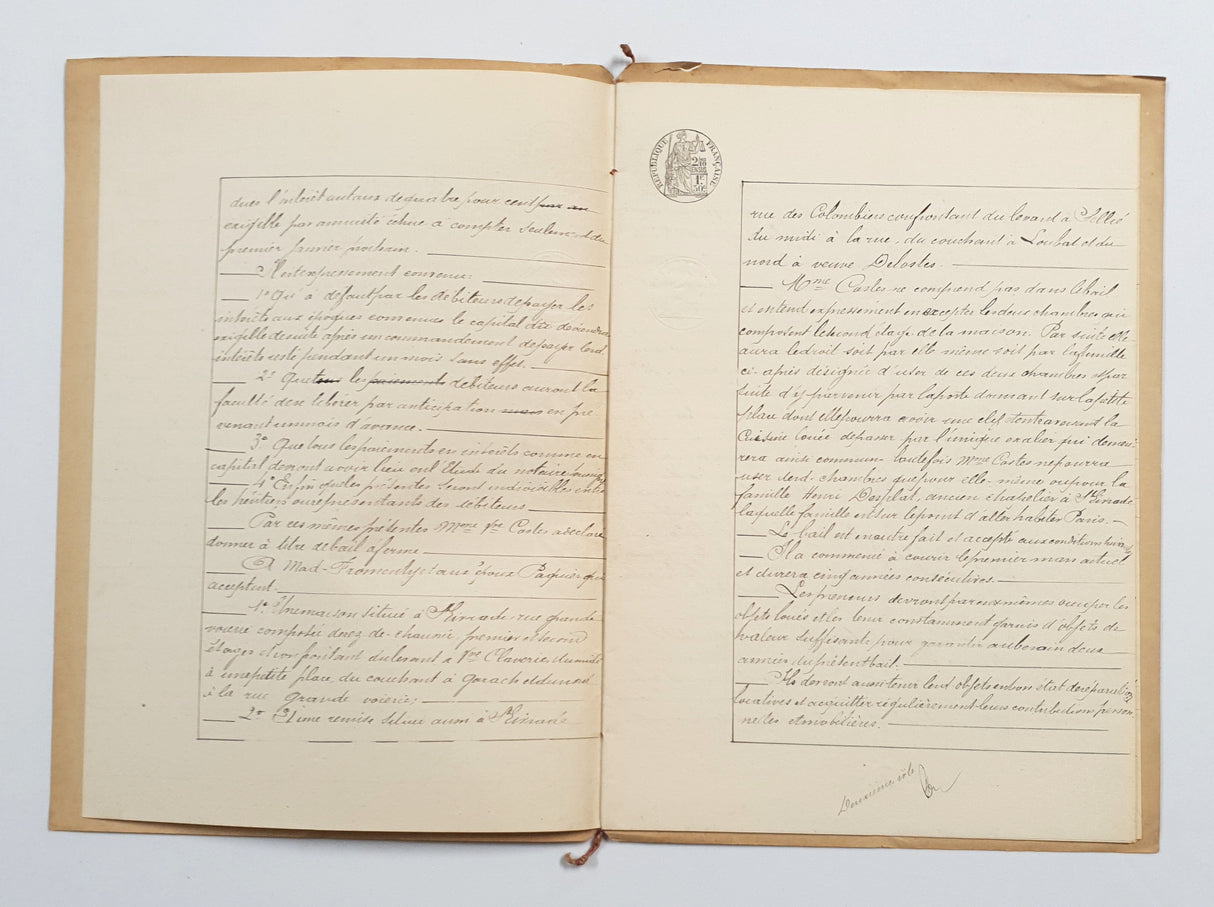 dues l'intérêt au taux de quatre pour cent par an
exigible par annuité échue à compter seulement du
premier janvier prochain.
Il est expressement convenu:
1º Qu'à défaut par les débiteurs de payer les
intérêts aux époques convenues le capital dû deviendra
exigible de suite après un commandement de payer lesd.
intérêts resté pendant un mois sans effet.
2º Que tous les paiements débiteurs auront la
faculté de se libérer par anticipation mais en pre
venant un mois d'avance.
3º Que tous les paiements en intérêts comme en
capital devront avoir lieu en l'Etude du notaire soussigné
4º Enfin que les présentes seront indivisibles entre
les héritiers ou représentants des débiteurs
Par ces mêmes présentes Mme Vve Costes a déclaré
donner à titre de bail à ferme
A Mad- aux époux Paquier qui
acceptent.
1º Une maison située à rue grande
voierie composée de rez-de-chaussée, premier et second
étages et confrontant du levant à Vve Claverie, du midi
à une petite place, du couchant à et du nord
à la rue grande voierie;
2º Et une remise située aussi à
REPUBLIQUE FRANÇAISE
rue des Colombiers confrontant du levant à
du midi à la rue, du couchant à Loubat et du
nord à veuve Delostes.
Mme Costes ne comprend pas dans le bail
et entend expressement en excepter les deux chambres qui
composent le second étage de la maison. Par suite elle
aura le droit soit par elle même soit par la famille
ci-après désignée d'user de ces deux chambres et par
suite d'y parvenir par la porte donnant sur la petite
place dont elle pourra avoir une clef, de traversant la
cuisine louée de passer par l'unique escalier qui demeu-
rera ainsi commun toutefois Mme Costes ne pourra
user desd. chambres que pour elle-même ou pour la
famille Henri Desplat, ancien chapelier à
laquelle famille est sur le point d'aller habiter Paris.
Le bail est en outre fait et accepté aux conditions suivantes
Il a commencé à courir le premier mars actuel
et durera cinq années consécutives.
Les preneurs devront par eux mêmes occuper les
objets loués et les tenir constamment garnis d'objets de
valeur suffisante pour garantir au besoin deux
années du présent bail.
Ils devront entretenir lesd objets en bon état de réparations
locatives et acquitter régulièrement leurs contributions person-
nelles et mobilières.
Deuxième rôle